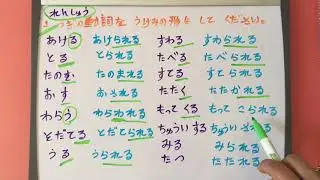 れんしゅう
つぎの動詞を うけみの形に して ください。
あける あけられる すわる すわられる
とる とられる たべる たべられる
たのむ たのまれる すてる すてられる
おす おされる たたく たたかれる
わらう わらわれる もってくる もって こられる
そだてる そだてられる ちゅういする ちゅういされる
うる うられる みる みられる
たつ たたれる